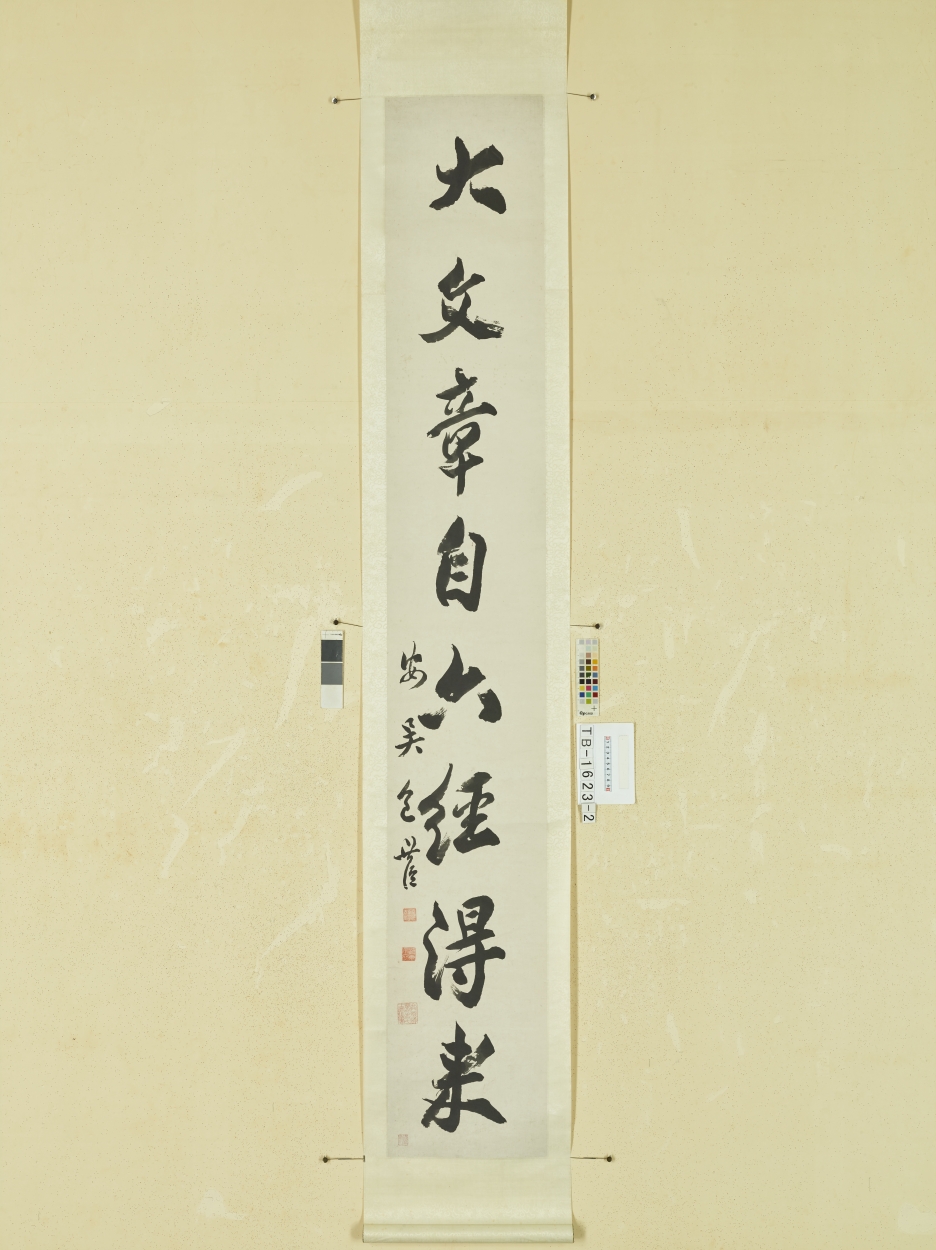 大文章自六經得来
安吳包世臣
TB-1623-2